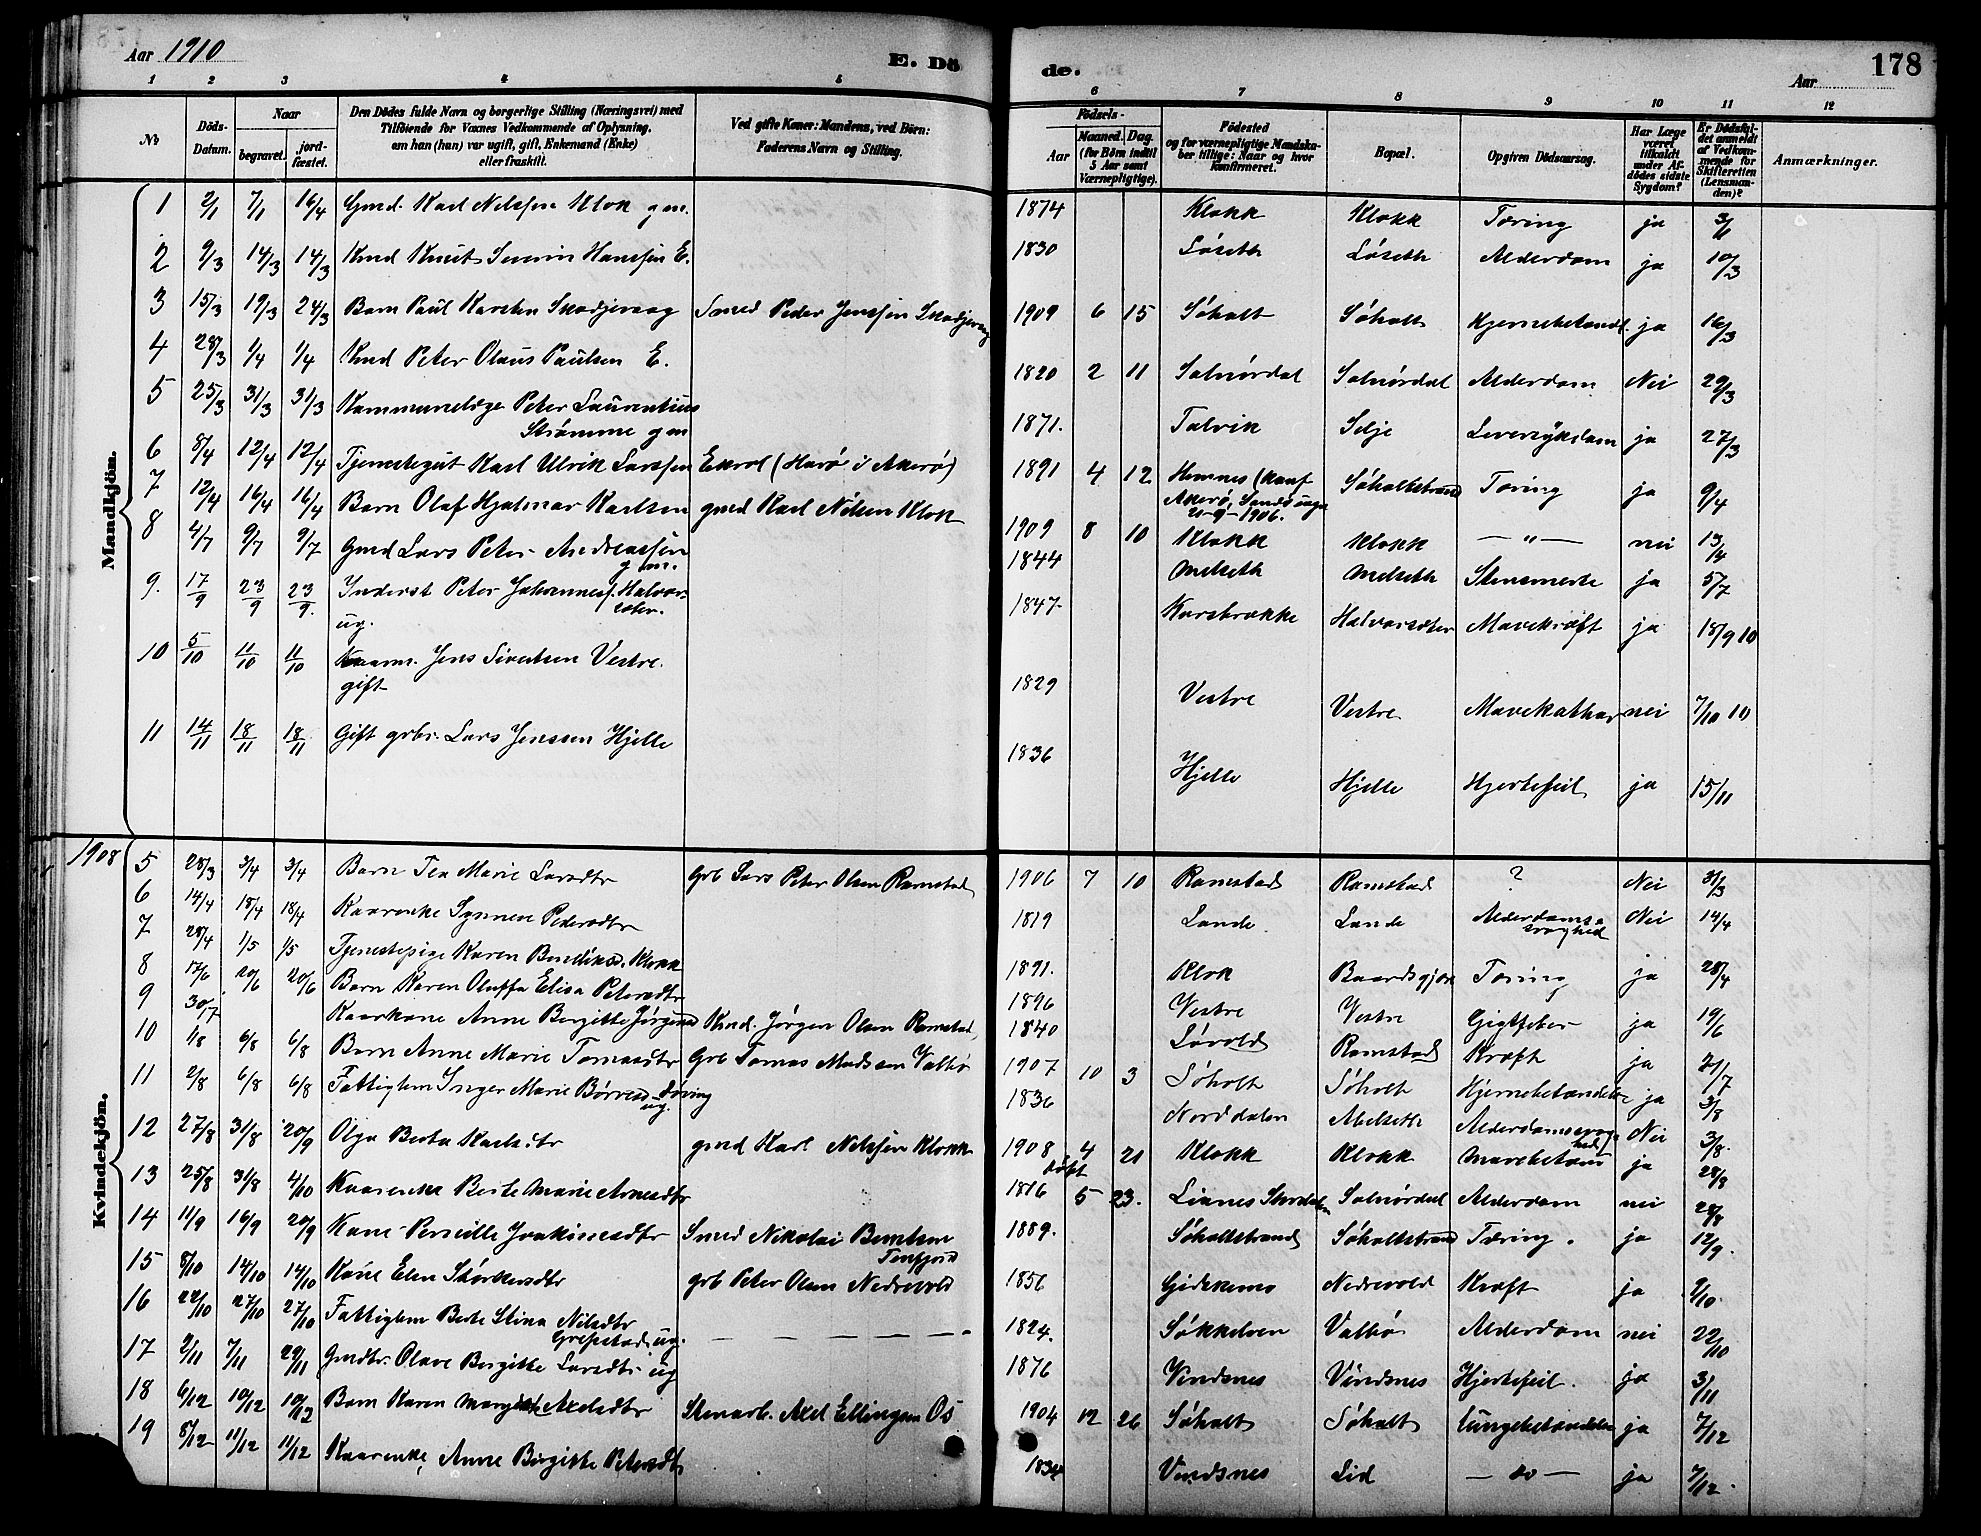 Aar 1910
E. Dö
de.
Aar
178
1 2 3 4 5 6 7 8 9 10 11 12
No
Döds-Datum.
Naar
begravet.
jordfæstet.
Den Dödes fulde Navn og borgerlige Stilling (Næringsvei) med
Tilföiende for Voxnes Vedkommende af Oplysning,
om han (hun) var ugift, gift, Enkemand (Enke)
eller fraskilt.
Ved gifte Koner: Mandens, ved Börn:
Faderens Navn og Stilling.
Födsels-
Aar
Maaned. Dag.
(for Börn indtil
5 Aar samt
Værnepligtige).
Födested
og for værnepligtige Mandska-
ber tillige: Naar og hvor
konfirmeret.
Bopæl.
Opgiven Dödsaarsag.
Har Læge
været
tilkaldt
under Af-
dödes sidste
Sygdom?
Er Dödsfal-
det anmeldt
af Vedkom-
mende for
Skifteretten
(Lensman-
den)?
Anmærkninger.
Mandkjön.
1 2/1 7/1 16/4 Gmd. Karl Nilssen Klok gm. 1874 Klokk Klokk Tæring ja
2 9/3 14/3 14/3 Kmd Knut Severin Hanssen E. 1830 Løseth Løseth Alderdom ja 10/3
3 15/3 19/3 24/3 Barn Paul Karsten Skodjevaag Smed Peder Jenssen Skodjevaag 1909 6 15 Søholt Søholt Hjernebetænd. ja 16/3
4 28/3 1/4 1/4 Kmd Peter Olaus Paulsen E. 1820 2 11 Solnørdal Solnørdal Alderdom Nei 29/3
5 25/3 31/3 31/3 Kommunelæge Peter Laurentius
Strømme gm 1871. Talvik Selje Leversykdom ja 27/3
6 8/4 12/4 12/4 Tjenestegut Karl Ulrik Larssen Ekrol (Harø i Akerø) 1891 4 12 Hemnes (konf
Akerø, Sands
21-9-1906. Søholtstrand Tæring ja 9/4
7 12/4 16/4 16/4 Barn Olaf Hjalmar Karlsen gmd Karl Nilsen Klok 1909 8 10 Klokk Klokk — " — nei 13/4
8 4/7 9/7 9/7 Gmd Lars Peter Andreassen
gm. 1844 Melseth Melseth Stensmerte ja 5/7
9. 17/9 23/9 23/9. Inderst Peter Johanness. Halvor-
sæter.
ug. 1847. Korsbrekke Halvorsæter Mavekræft ja 18/9 10
10 5/10 11/10 11/10 Kaarm. Jens Sivertsen Vestre.
gift 1829 Vestre Vestre Mavekathar nei 7/10 10
11 14/11 18/11 18/11 Gift grbr. Lars Jenssen Hjelle 1836 Hjelle Hjelle Hjertefeil ja 15/11
Kvindekjön.
1908
5 28/3 3/4 3/4 Barn Tea Marie Larsdtr grb Lars Peter Olsen Ramstad 1906 7 10 Ramstad Ramstad ? Nei 31/3
6 14/4 18/4 18/4 Kaarenke Synnen Pedersdtr 1819 Lande Lande Alderdoms-
svaghed Nei 14/4
7 28/4 1/5 1/5 Tjenestepige Karen Bendiksd. Klokk 1891. Klok Baardsgjær Tæring ja 28/4
8 17/6 20/6 20/6 Barn Karen Oluffa Elisa Petersdtr 1896 Vestre Vestre Gigtfeber ja 19/6
9 30/7 Kaarkone Anne Birgitte Jørgensd Kmd. Jørgen Olsen Ramstad, 1840 Løvold Ramstad Kræft ja 31/7
10 1/8 6/8 6/8 Barn Anne Marie Tomasdtr grb Tomas Madssen Valbø 1907 10 3 Søholt Søholt Hjernebetændelse ja 3/8
11 2/8 6/8 6/8 Fattiglem Inger Marie Børresd Døving
ug. 1836 Norddalen Melseth Alderdomssvag-
hed Nei 3/8.
12 27/8 31/8 20/9 Olga Berta Karlsdtr gmd Karl Nilssen Klokk 1908 4 21
døpt Klokk Klokk Mavebetænd ja 28/8
13 25/8 31/8 4/10 Kaarenke Berte Marie Arnesdtr 1816 5 23. Lianes Stordalen Solnørdal Alderdom nei 28/8
14 11/9 16/9 20/9 Kone Pernille Joakimsdtr Smed Nikolai Berntsen
Tenfjord 1889. Søholtstrand Søholtstrand Tæring. ja 12/9.
15 8/10 14/10 14/10 Kone Elen Størkersdtr grb Peter Olsen Nedrevold 1856 Nedrevold Kræft ja 9/10.
16 22/10 27/10 27/10 Fattiglem Berte Stina Nilsdtr
Grepstad ug. — — — — — 1824. Søkkelven Valbø Alderdom nei 22/10
17 2/11 7/11 29/11 Gmdtr. Olave Birgitte Larsdtr ug 1876 Vindsnes Vindsnes Hjertefeil. ja 3/11
18 6/12 10/12 10/12 Barn Karen Margit Axelsdtr Stenarb. Axel Ellingsen Os 1904 12 26 Søholt Søholt Lungebetændelse ja 7/12
19 8/12 11/12 11/12 Kaarenke, Anne Birgitte Petersdtr 1834 Vindsnes Lid — do — ja 7/12.